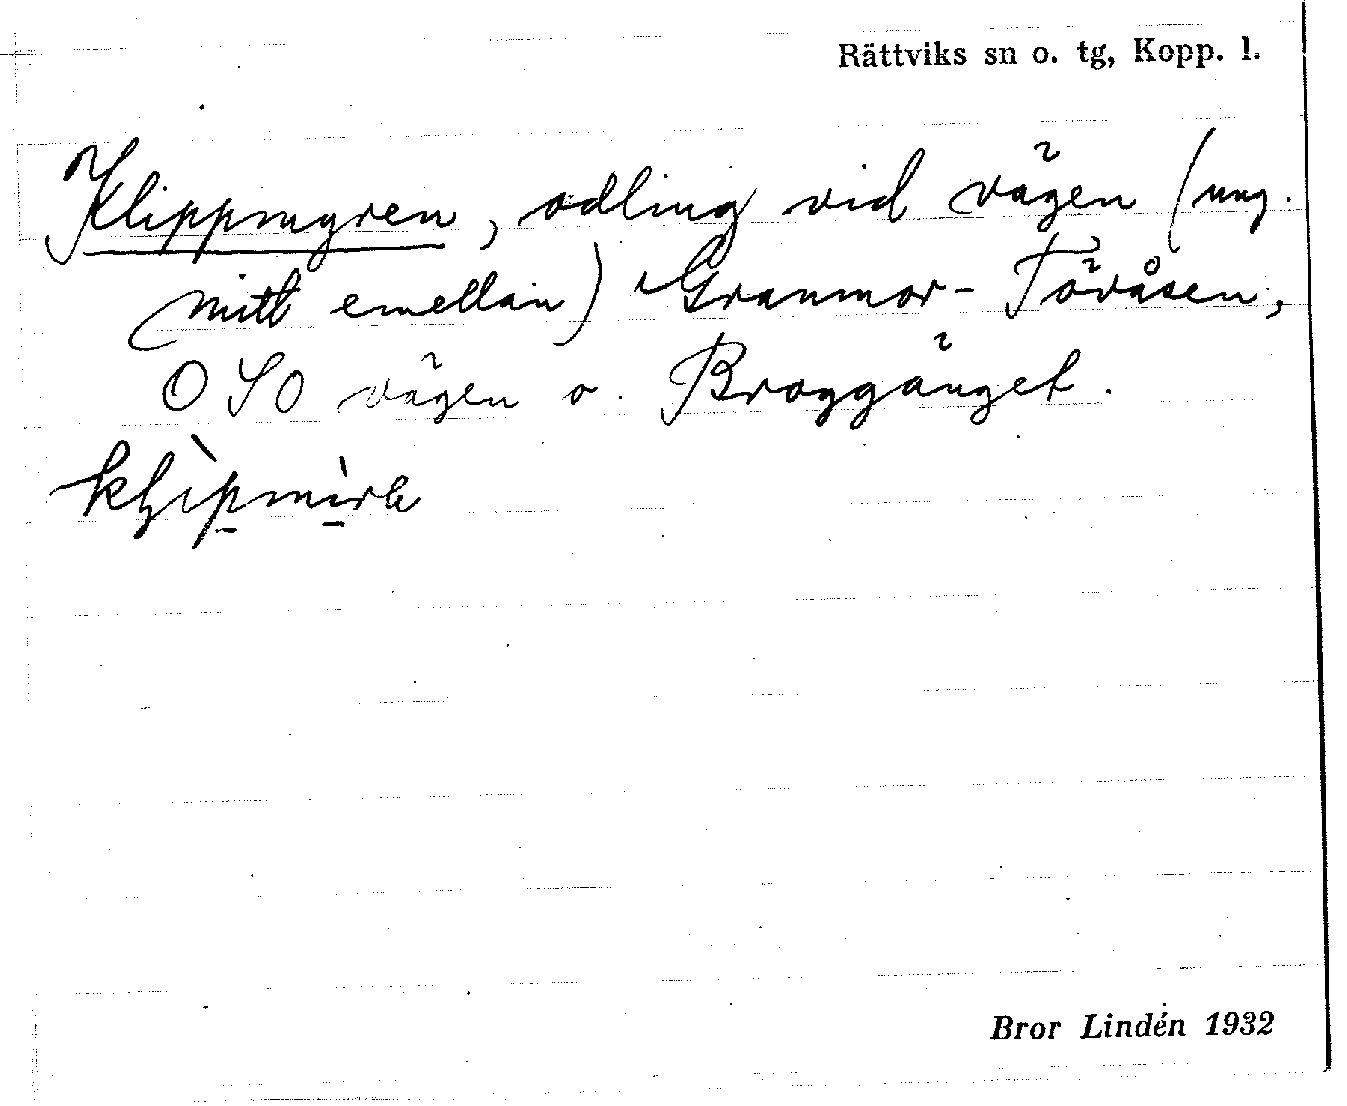 Rättviks sn o. tg, Kopp. l.
Klippmyren, odling vid vägen (ung.
mitt emellan) Granmor- Töråsen,
OSO vägen o. Broggänget.
Bror Lindén 1932